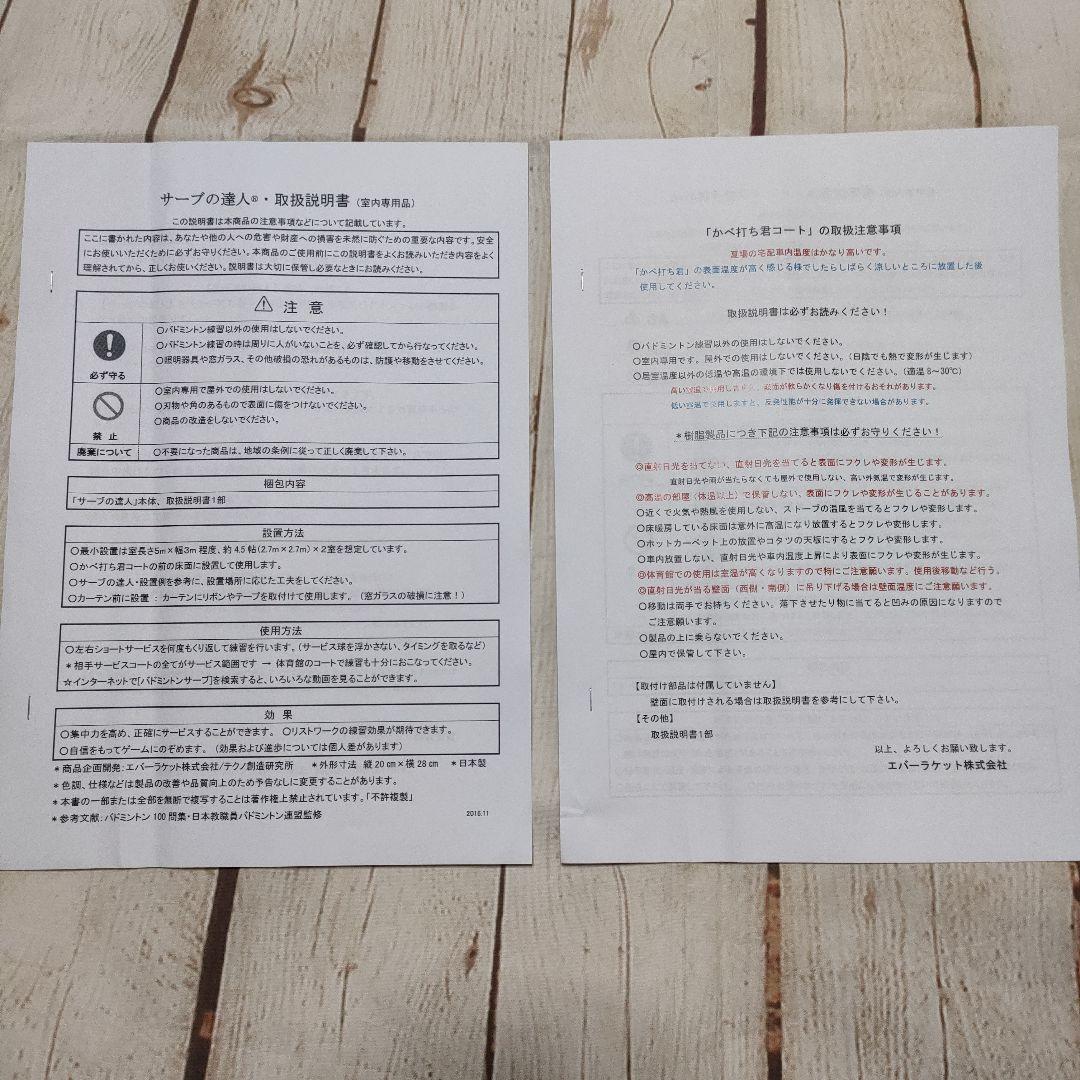 サーブの達人®・取扱説明書（室内専用品）
この説明書は本商品の注意事項などについて記載しています。
ここに書かれた内容は、あなたや他の人への危害や財産への損害を未然に防ぐための重要な内容です。安全
にお使いいただくために必ずお守りください。本商品のご使用前にこの説明書をよくお読みいただき内容をよく
理解されてから、正しくお使いください。説明書は大切に保管し必要なときにお読みください。
注 意
必ず守る
○バドミントン練習以外の使用はしないでください。
○バドミントン練習の時は周りに人がいないことを、必ず確認してから行なってください。
○照明器具や窓ガラス、その他破損の恐れがあるものは、防護や移動をさせてください。
禁 止
○室内専用で屋外での使用はしないでください。
○刃物や角のあるもので表面に傷をつけないでください。
○商品の改造をしないでください。
廃棄について
○不要になった商品は、地域の条例に従って正しく廃棄して下さい。
梱包内容
「サーブの達人」本体、取扱説明書1部
設置方法
○最小設置は室長さ5m×幅3m程度、約4.5帖(2.7m×2.7m)×2室を想定しています。
○かべ打ち君コートの前の床面に設置して使用します。
○サーブの達人・設置例を参考に、設置場所に応じた工夫をしてください。
○カーテン前に設置 : カーテンにリボンやテープを取付けて使用します。（窓ガラスの破損に注意！）
使用方法
○左右ショートサービスを何度もくり返して練習を行います。（サービス球を浮かさない、タイミングを取るなど）
＊相手サービスコートの全てがサービス範囲です → 体育館のコートで練習も十分におこなってください。
☆インターネットで[バドミントンサーブ]を検索すると、いろいろな動画を見ることができます。
効 果
○集中力を高め、正確にサービスすることができます。 ○リストワークの練習効果が期待できます。
○自信をもってゲームにのぞめます。（効果および進歩については個人差があります）
＊商品企画開発：エバーラケット株式会社/テクノ創造研究所 ＊外形寸法 縦20cm×横28cm ＊日本製
＊色調、仕様などは製品の改善や品質向上のため予告なしに変更することがあります。
＊本書の一部または全部を無断で複写することは著作権上禁止されています。「不許複製」
＊参考文献：バドミントン100問集・日本教職員バドミントン連盟監修
2016.11
「かべ打ち君コート」の取扱注意事項
夏場の宅配車内温度はかなり高いです。
「かべ打ち君」の表面温度が高く感じる様でしたらしばらく涼しいところに放置した後
使用してください。
取扱説明書は必ずお読みください！
○バドミントン練習以外の使用はしないでください。
○室内専用です。屋外での使用はしないでください。（日陰でも熱で変形が生じます）
○居室温度以外の低温や高温の環境下では使用しないでください。（適温8～30℃）
高い室温で使用しますと、表面が軟らかくなり傷を付けるおそれがあります。
低い室温で使用しますと、反発性能が十分に発揮できない場合があります。
＊樹脂製品につき下記の注意事項は必ずお守りください！
◎直射日光を当てない、直射日光を当てると表面にフクレや変形が生じます。
直射日光や雨が当たらなくても屋外で使用しない、高い外気温で変形が生じます。
◎高温の部屋（体温以上）で保管しない、表面にフクレや変形が生じることがあります。
○近くで火気や熱風を使用しない、ストーブの温風を当てるとフクレや変形します。
○床暖房している床面は意外に高温になり放置するとフクレや変形します。
○ホットカーペット上の放置やコタツの天板にするとフクレや変形します。
○車内放置しない、直射日光や車内温度上昇により表面にフクレや変形が生じます。
◎体育館での使用は室温が高くなりますので特にご注意願います。使用後移動など行う。
◎直射日光が当る壁面（西側・南側）に吊り下げる場合は壁面温度にご注意願います。
○移動は両手でお持ちください。落下させたり物に当てると凹みの原因になりますので
ご注意願います。
○製品の上に乗らないでください。
○屋内で保管して下さい。
【取付け部品は付属していません】
壁面に取付けされる場合は取扱説明書を参考にして下さい。
【その他】
取扱説明書1部
以上、よろしくお願い致します。
エバーラケット株式会社